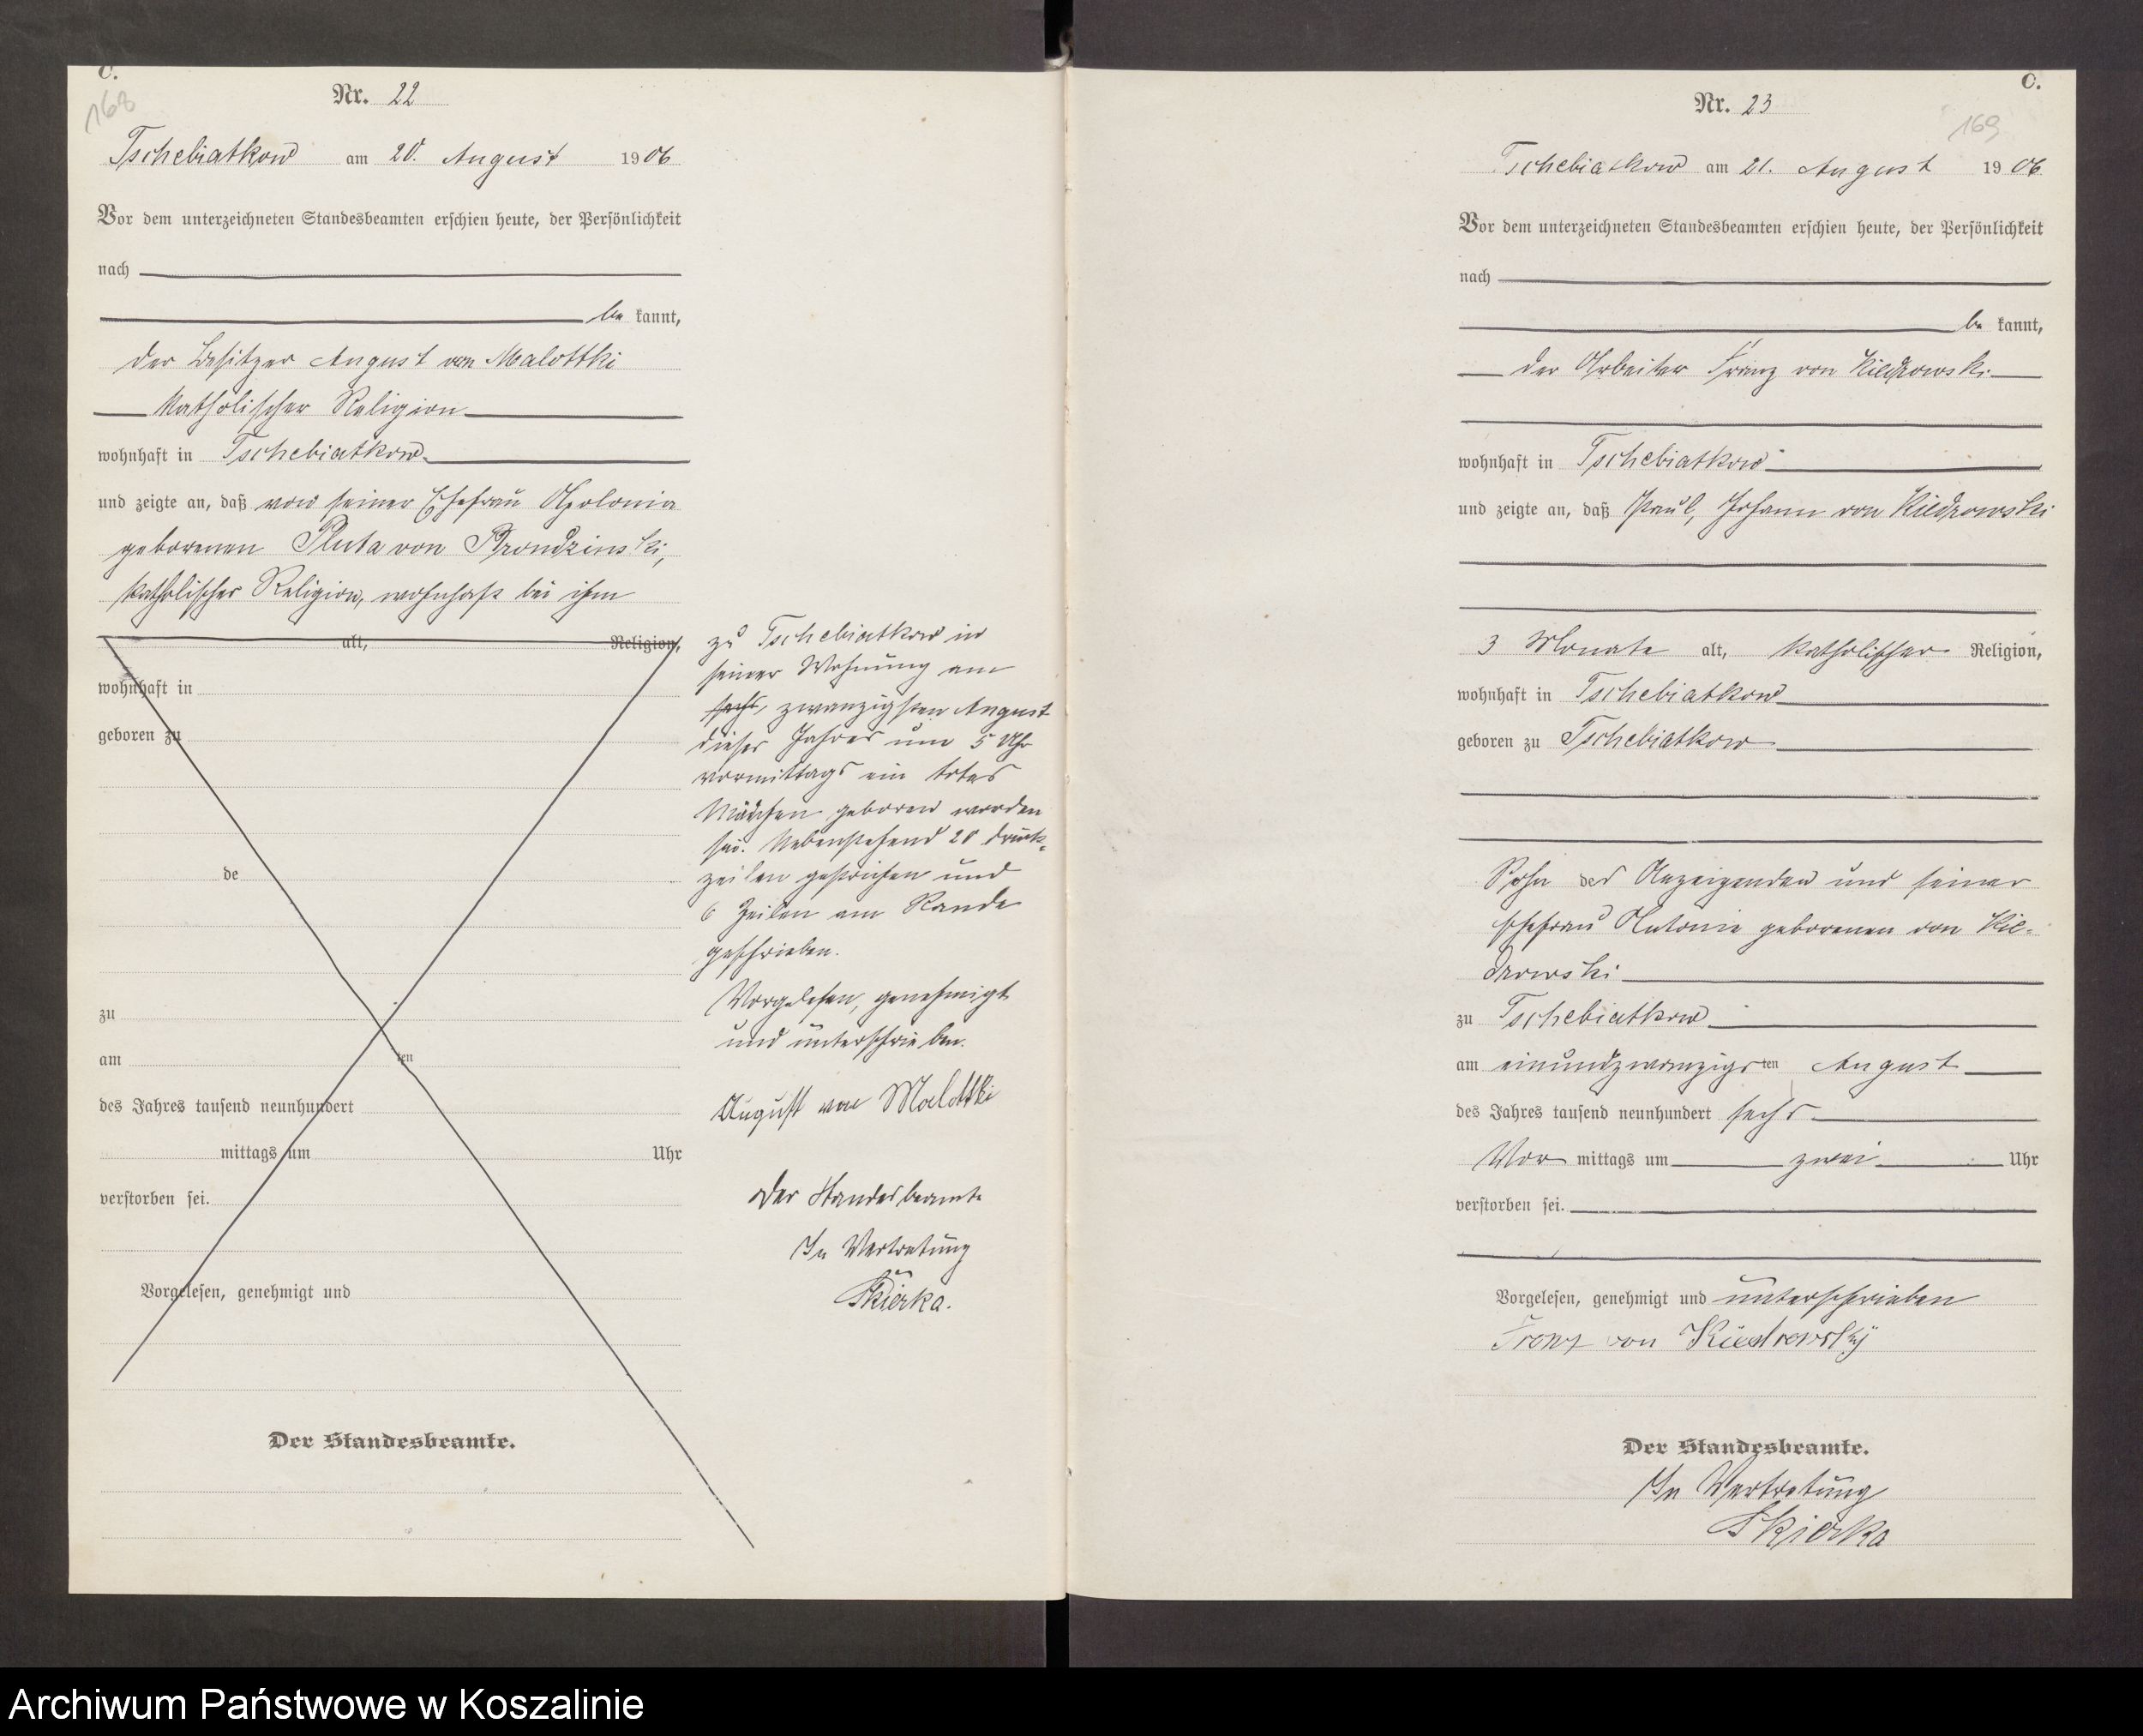 C.
168
Nr. 22
Tschebiatkow am 20. August 1906
Vor dem unterzeichneten Standesbeamten erschien heute, der Persönlichkeit
nach
be kannt,
der Besitzer August von Malottki
katholischer Religion
wohnhaft in Tschebiatkow
und zeigte an, daß von seiner Ehefrau Apolonia
geborenen Pluta von Prondzinski,
katholischer Religion, wohnhaft bei ihm
alt, Religion,
wohnhaft in
geboren zu
de
zu
am ten
des Jahres tausend neunhundert
mittags um Uhr
verstorben sei.
Vorgelesen, genehmigt und
Der Standesbeamte.
zu Tschebiatkow in
seiner Wohnung am
zwanzigsten August
dieses Jahres um 5 Uhr
vormittags ein totes
Mädchen geboren worden
sei. Nebenstehend 20 Druck-
zeilen gestrichen und
6 Zeilen am Rande
geschrieben.
Vorgelesen, genehmigt
und unterschrieben.
August von Malottki
Der Standesbeamte
In Vertretung
Skierka.
C.
169
Nr. 23
Tschebiatkow am 21. August 1906
Vor dem unterzeichneten Standesbeamten erschien heute, der Persönlichkeit
nach
be kannt,
der Arbeiter Franz von Kiedrowski
wohnhaft in Tschebiatkow
und zeigte an, daß Paul, Johann von Kiedrowski
3 Monate alt, katholischer Religion,
wohnhaft in Tschebiatkow
geboren zu Tschebiatkow
Sohn des Anzeigenden und seiner
Ehefrau Antonie geborenen von Kie-
drowski
zu Tschebiatkow
am einundzwanzigsten August
des Jahres tausend neunhundert sechs
Vor mittags um zwei Uhr
verstorben sei.
Vorgelesen, genehmigt und unterschrieben
Franz von Kiedrowsky
Der Standesbeamte.
In Vertretung
Skierka
Archiwum Państwowe w Koszalinie